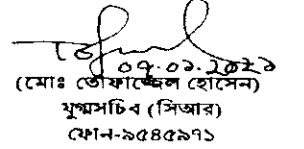 ০৭.০১.২০২১
(মোঃ তোফাজ্জেল হোসেন)
যুগ্মসচিব (সিআর)
ফোন-৯৫৪৫৯৭১